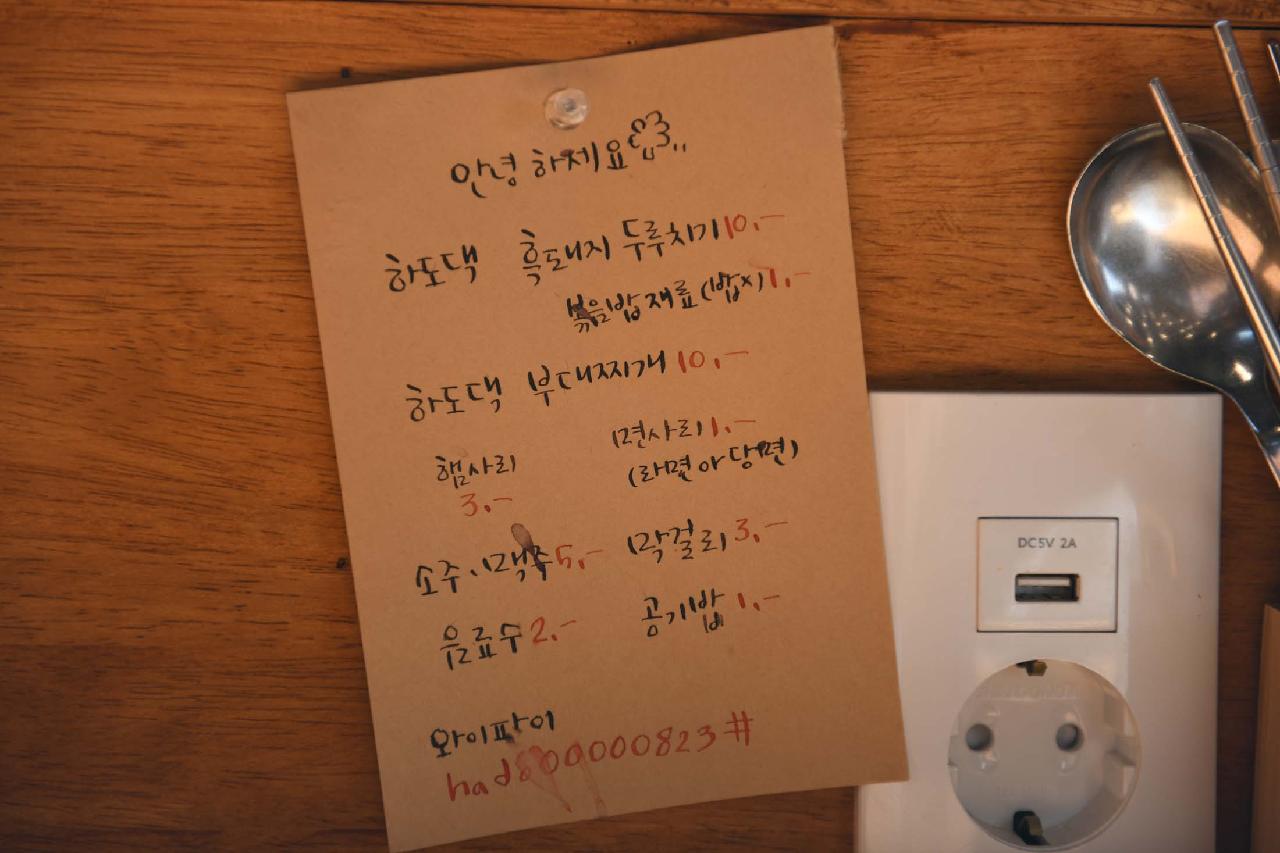 안녕 하세요
하도댁 흑돼지 두루치기 10.-
볶음밥 재료(밥x) 1.-
하도댁 부대찌개 10.-
햄사리 면사리 1.-
3.- (라면 or 당면)
소주、맥주 5.- 막걸리 3.-
음료수 2.- 공기밥 1.-
와이파이
DC5V 2A